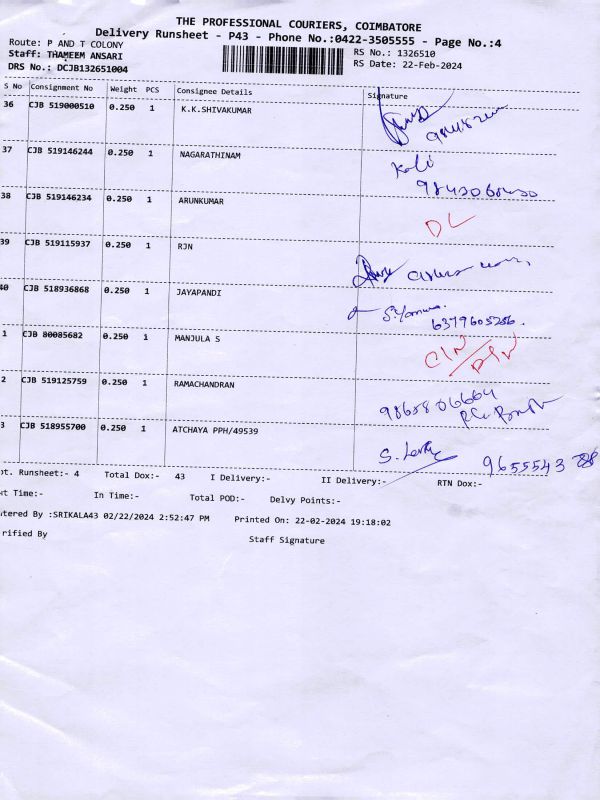 THE PROFESSIONAL COURIERS, COIMBATORE
Delivery Runsheet - P43 - Phone No.:0422-3505555 - Page No.:4
Route: P AND T COLONY
RS No.: 1326510
Staff: THAMEEM ANSARI
RS Date: 22-Feb-2024
DRS No.: DCJB132651004
S No Consignment No Weight PCS Consignee Details Signature
36 CJB 519000510 0.250 1 K.K.SHIVAKUMAR
37 CJB 519146244 0.250 1 NAGARATHINAM
38 CJB 519146234 0.250 1 ARUNKUMAR DL
39 CJB 519115937 0.250 1 RJN
40 CJB 518936868 0.250 1 JAYAPANDI
6379605286.
1 CJB 80085682 0.250 1 MANJULA S
2 CJB 519125759 0.250 1 RAMACHANDRAN
3 CJB 518955700 0.250 1 ATCHAYA PPH/49539
ot. Runsheet:- 4 Total Dox:- 43 I Delivery:- II Delivery:- RTN Dox:-
Time:- In Time:- Total POD:- Delvy Points:-
tered By :SRIKALA43 02/22/2024 2:52:47 PM Printed On: 22-02-2024 19:18:02
rified By Staff Signature